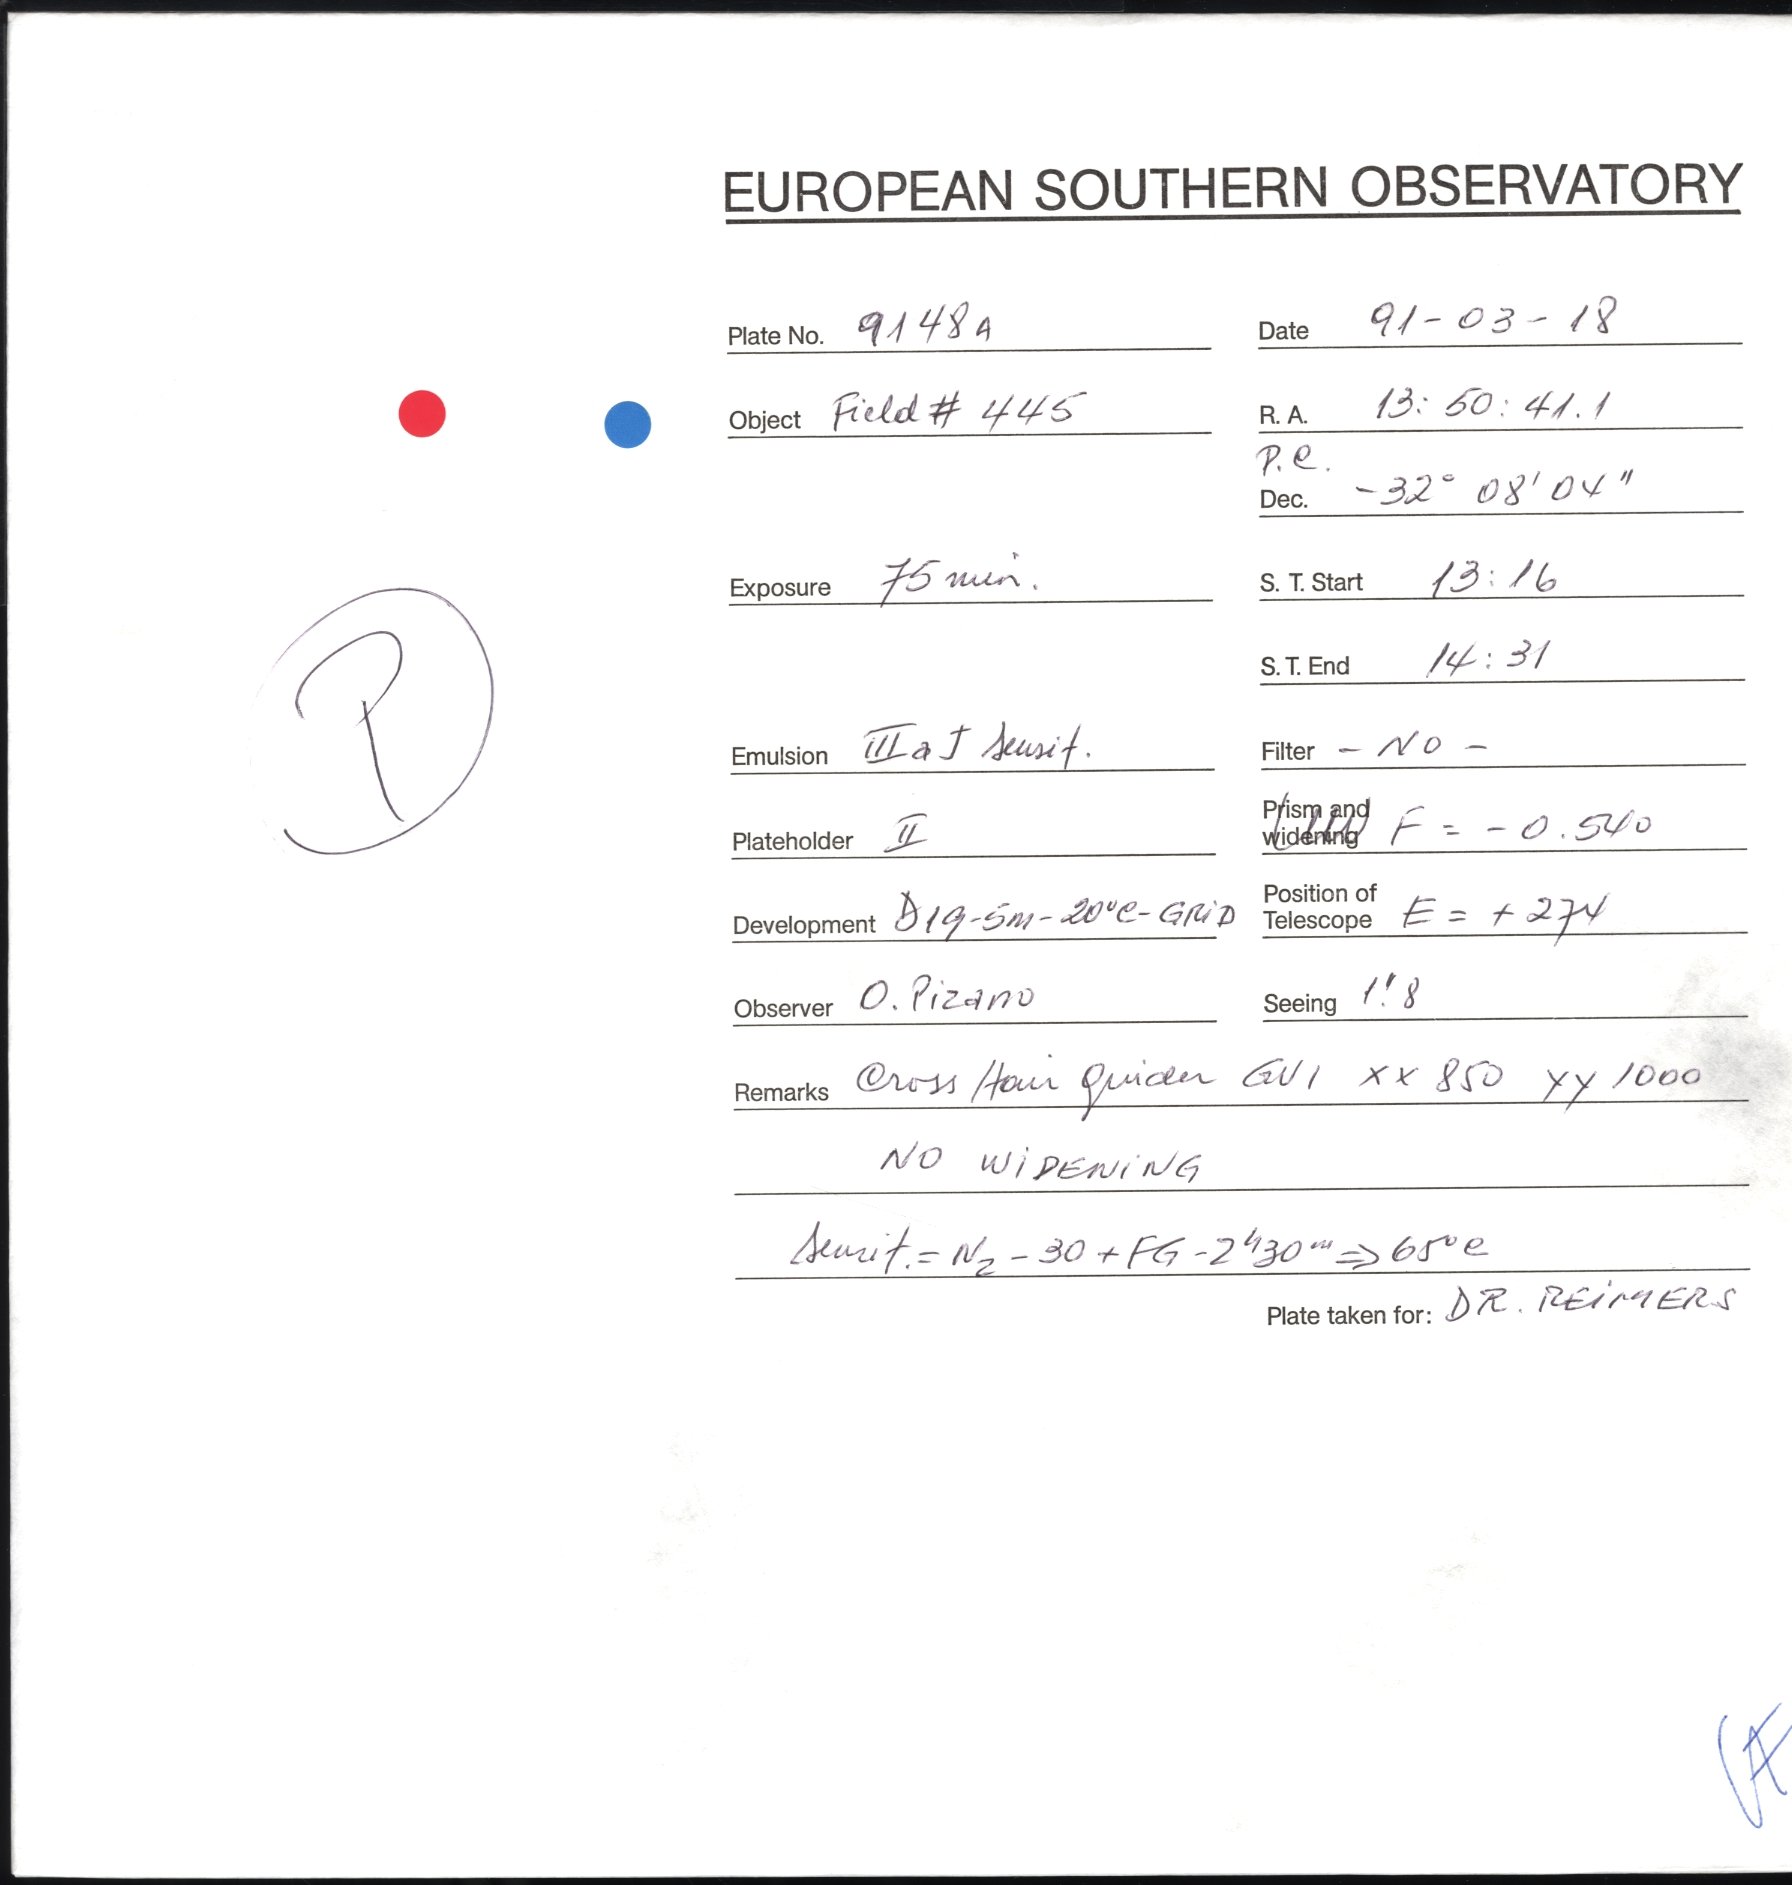 EUROPEAN SOUTHERN OBSERVATORY
Plate No. 9148A
Date 91-03-18
Object Field # 445
R. A. 13: 50: 41.1
P.C.
Dec. -32° 08' 04"
Exposure 75 min.
S. T. Start 13:16
S. T. End 14:31
Emulsion IIIaJ Sensit.
Filter - NO -
Plateholder II
Prism and
widening F = - 0.540
Development D19-5m-20°C-GRiD
Position of
Telescope E = + 274
Observer O. Pizarro
Seeing 1".8
Remarks Cross Hair Guider GV1 xx 850 yy 1000
NO WiDENiNG
Sensit. = N2 - 30 + FG - 2h30m => 65°C
Plate taken for: DR. REiMERS
P